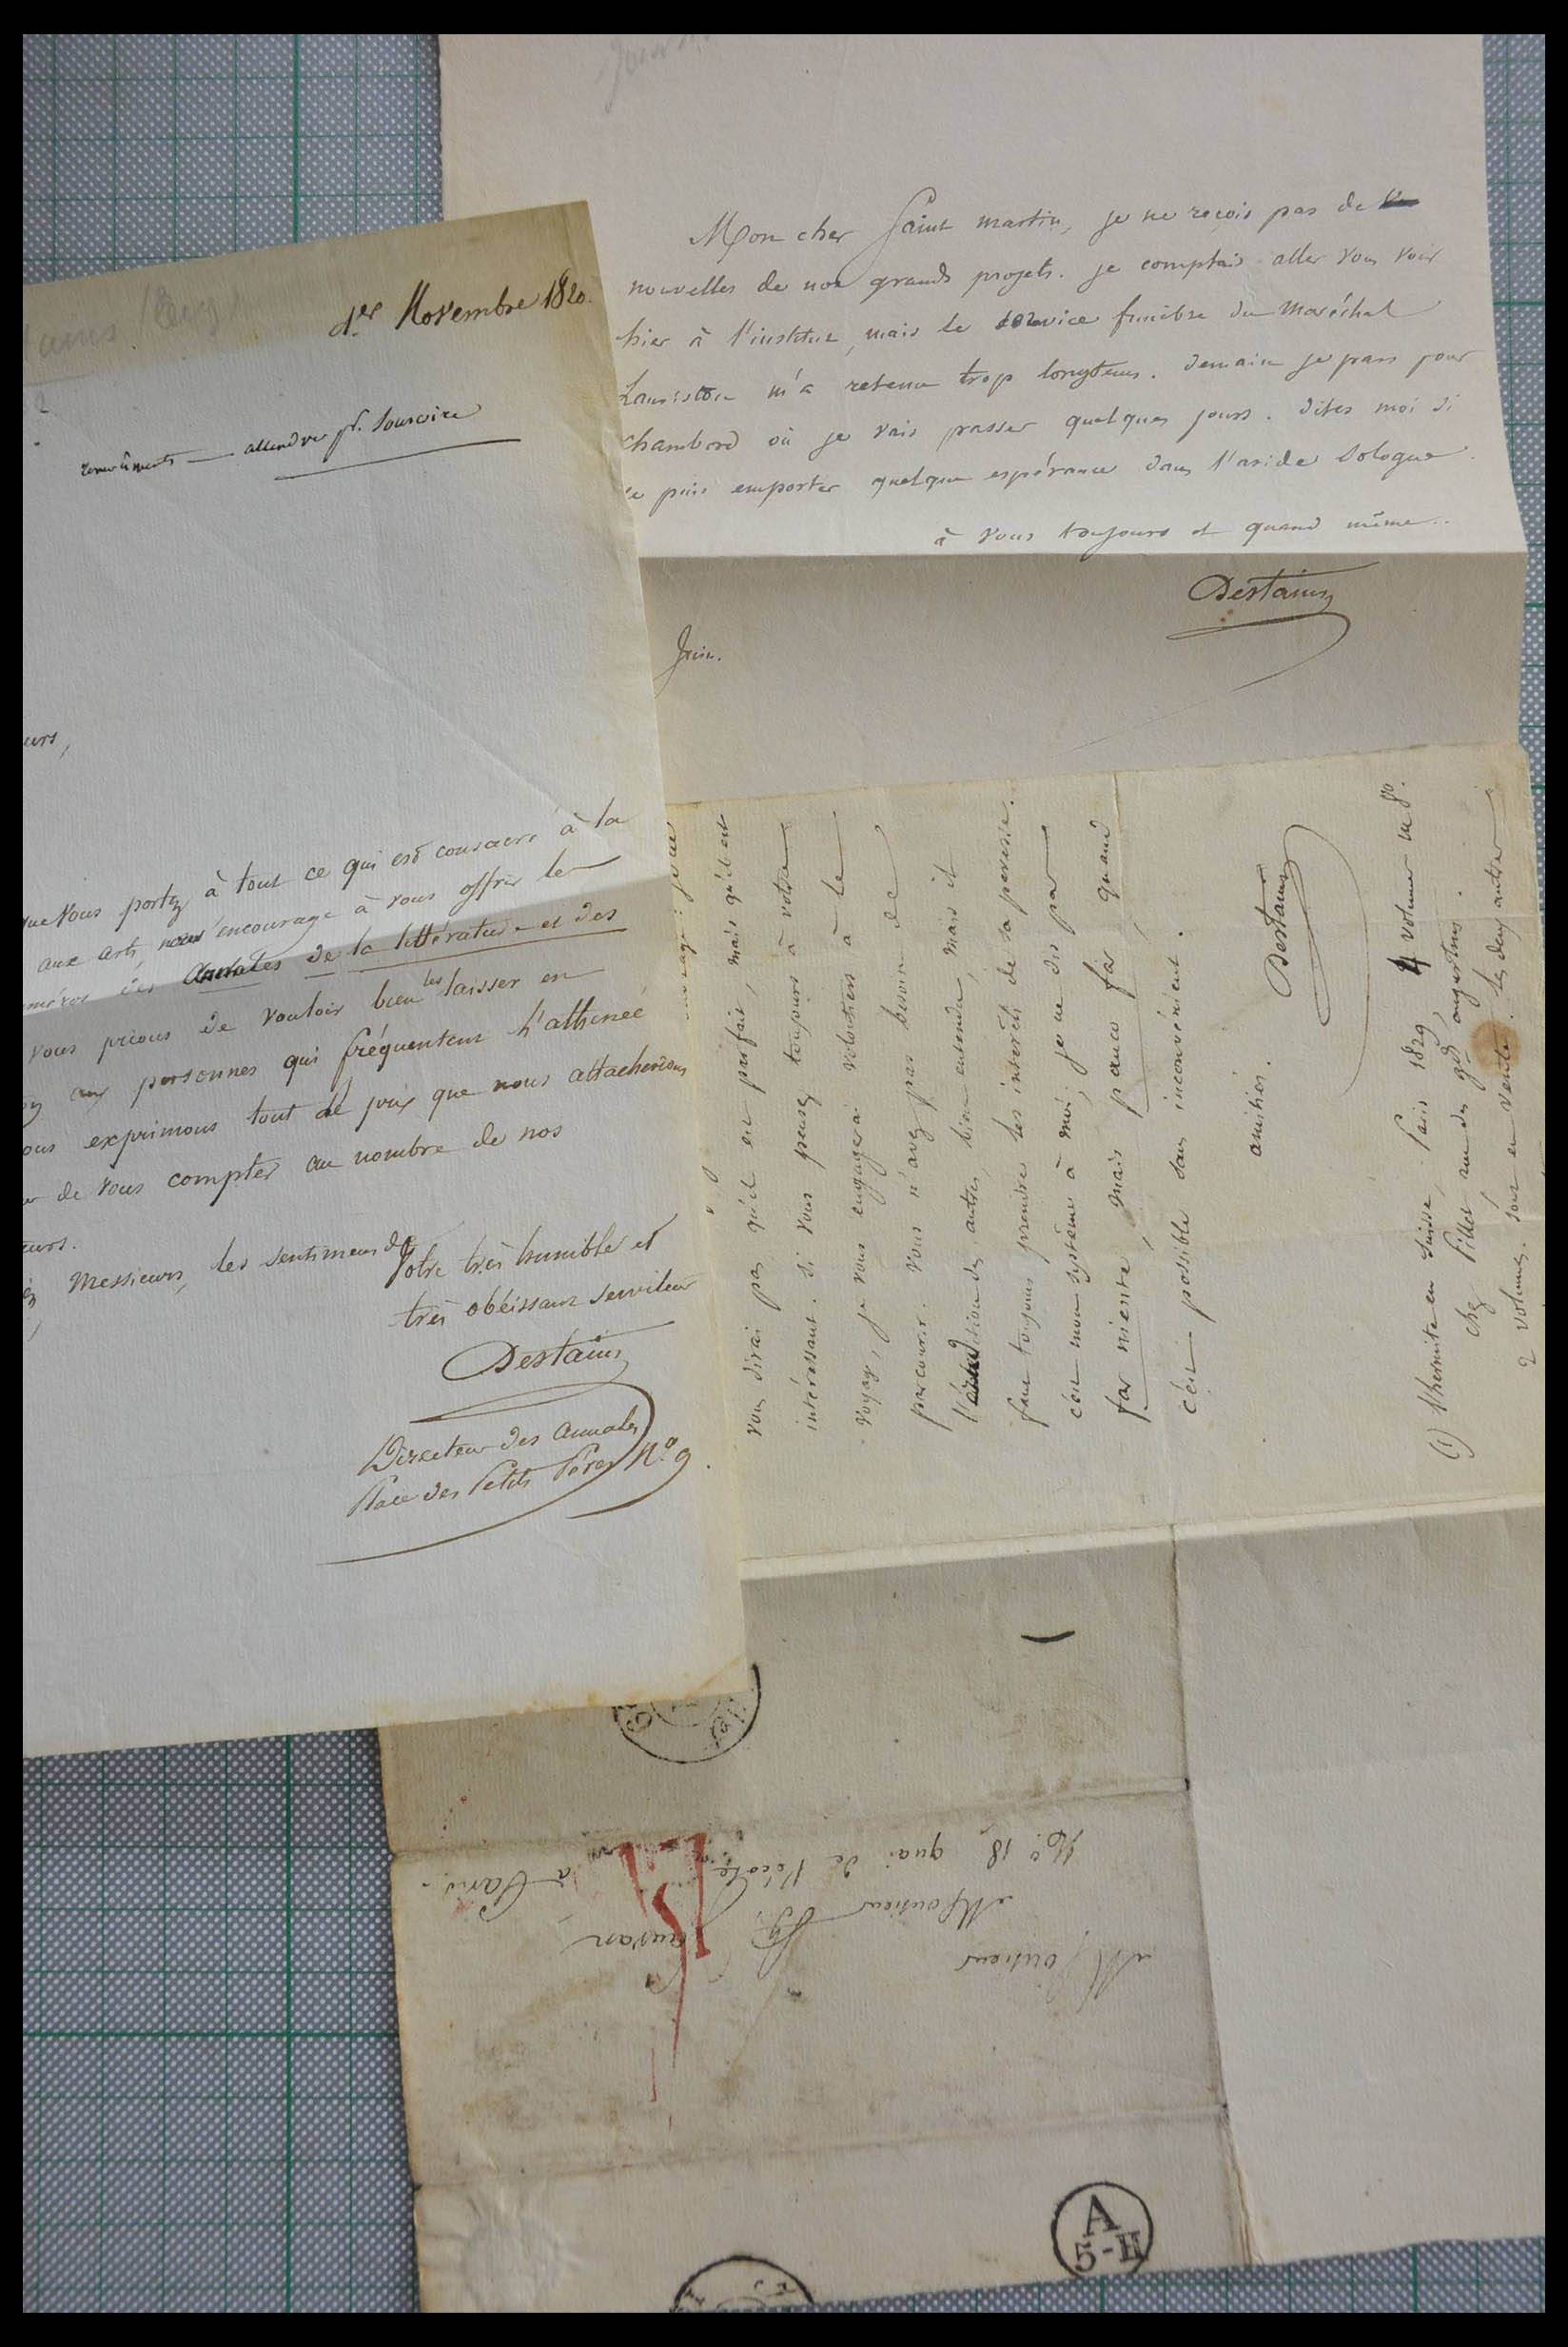 1er Novembre 1820.
remerciments — attendre pr. souscrire
eurs,
que vous portez à tout ce qui est consacré à la
aux arts, nous encourage à vous offrir le
uméros des Annales de la littérature et des
vous prions de vouloir bien les laisser en
aux personnes qui fréquentent l'athénée
ous exprimons tout le prix que nous attacherions
de vous compter au nombre de nos
eurs.
Messieurs, les sentimens de
Votre très humble et
très obéissant serviteur
Destains
Directeur des annales
Place des Petits Pères No 9.
Mon cher Saint martin, je ne reçois pas de
nouvelles de nos grands projets. je comptais aller vous voir
hier à l'institut, mais le service funèbre du Maréchal
Lauriston m'a retenu trop longtems. demain je pars pour
chambord où je vais passer quelques jours. dites moi si
je puis emporter quelque espérance dans l'aride Sologne.
à vous toujours et quand même..
Destains
Juin.
vous dirai pas qu'il est parfait, mais qu'il est
intéressant. si vous pensez toujours à votre
voyage, je vous engagerai volontiers à le
parcourir. vous n'avez pas besoin de
l'érudition des autres, bien entendu, mais il
faut toujours prendre les intérêts de sa paresse.
c'est mon système à moi; je ne dis pas
far niente, mais pauco far, quand
c'est possible sans inconvénient.
amitiés.
Destains
(1) l'hermite en Suisse, Paris 1829, 4 volumes in 8o.
chez Pillet rue des gds augustins.
2 volumes sont en vente. les deux autres
Monsieur
Monsieur
No 18 quai de l'école
à Paris.
A
5-H